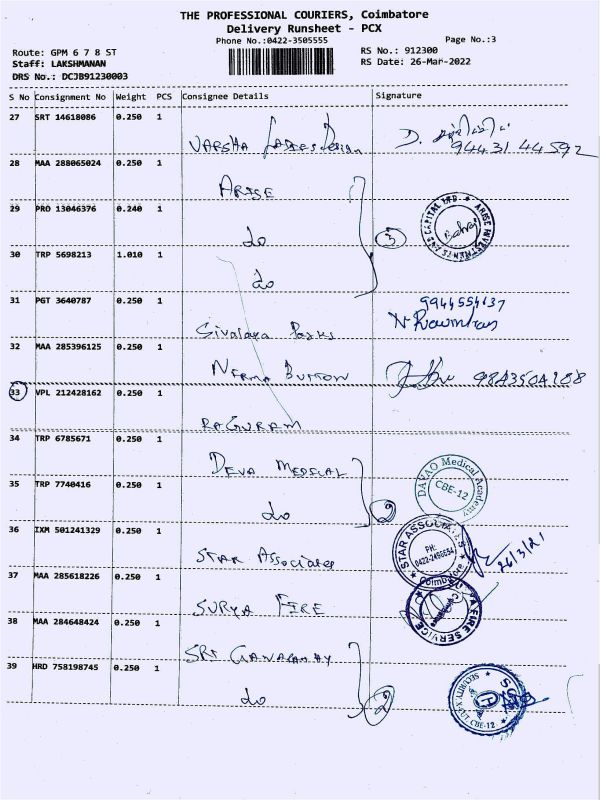 THE PROFESSIONAL COURIERS, Coimbatore
Delivery Runsheet - PCX
Phone No.:0422-3505555
Page No.:3
Route: GPM 6 7 8 ST
RS No.: 912300
Staff: LAKSHMANAN
RS Date: 26-Mar-2022
DRS No.: DCJB91230003
S No Consignment No Weight PCS Consignee Details Signature
27 SRT 14618086 0.250 1
VARSHA
D.
94431 44592
28 MAA 288065024 0.250 1
ARISE
29 PRO 13046376 0.240 1
do
3
ARISE INVESTMENTS AND CAPITAL LTD.
30 TRP 5698213 1.010 1
do
31 PGT 3640787 0.250 1
9944554637
Sivalaya
32 MAA 285396125 0.250 1
NERMA BUTTON
9843504208
33 VPL 212428162 0.250 1
RAGURAM
34 TRP 6785671 0.250 1
DEVA MEDICAL
35 TRP 7740416 0.250 1
do
2
DAVAO Medical Academy
CBE-12
36 IXM 501241329 0.250 1
STAR Associates
STAR ASSOCIATES
PH:
Coimbatore
26/3/21
37 MAA 285618226 0.250 1
SURYA FIRE
FIRE SERVICE
38 MAA 284648424 0.250 1
SRI GANAPATHY
39 HRD 758198745 0.250 1
do
2
SECURITY
CBE-12